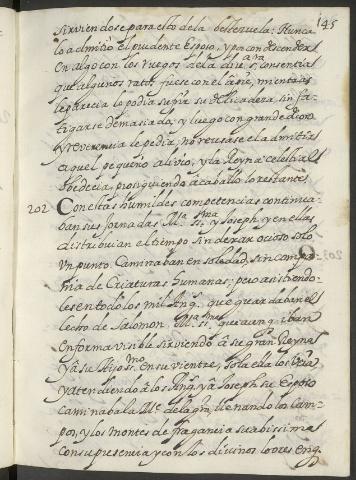 145
sirviendose para esto de la bestezuela: Nunca
lo admitio el prudente Esposo, y por condescender
en algo con los ruegos de la divi.ª s.ª consentia
que algunos ratos fuese con el a pie, mientras
le parecia lo podia sufrir su delicadeza, sin fa-
tigarse demasiado, y luego con grande decoro
y reverencia le pedia, no reusase el admitir
aquel pequeño alivio, y la Reyna celestial
obedecia, prosiguiendo à caballo lo restante.
202 Con estas humildes competencias continua-
ban sus jornadas M.ª SS.ma y Joseph, y en ellas
distribuian el tiempo sin dexar ocioso solo
un punto. Caminaban en soledad, sin compa-
ñia de Criaturas humanas; pero asistiendo-
les en todo los mil Ang.s que guardaban el
lecho de Salomon, M.ª SS.ma que aunq. iban
en forma visible sirviendo à su gran Reyna
y à su Hijo SS.mo en su vientre, sola ella los veia
y atendiendo à los Ang.s y à Joseph su Esposo
caminaba la M.e de la gra. llenando los Cam-
pos, y los montes de fragancia suabissima
con su presencia y con los divinos loores en q.